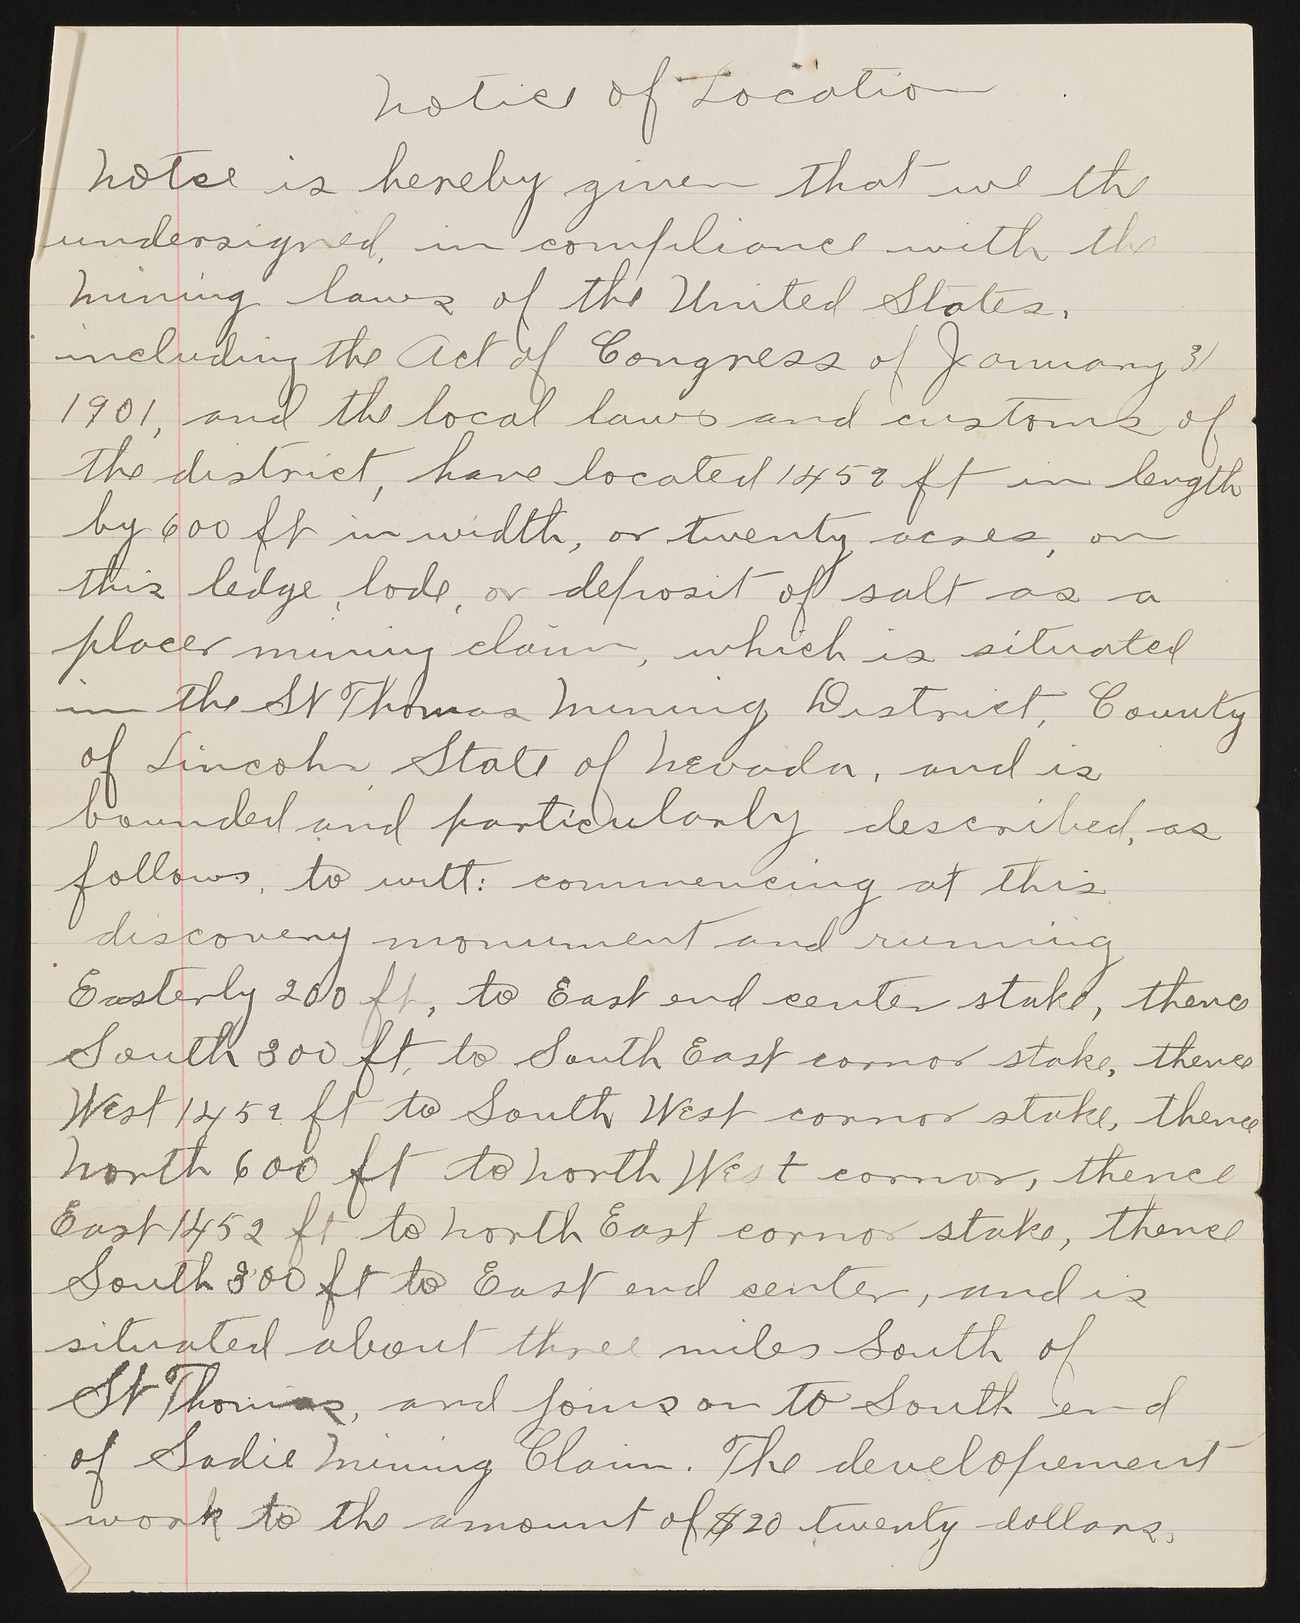 Notice of Location
Notce is hereby given that we the
undersigned, in compliance with the
mining laws of the United States,
including the Act of Congress of January 31
1901, and the local laws and customs of
the district, have located 1452 ft in length
by 600 ft in width, or twenty acres, on
this ledge, lode, or deposit of salt as a
placer mining claim, which is situated
in the St Thomas Mining District, County
of Lincoln State of Nevada, and is
bounded and particularly described, as
follows, to witt: commencing at this
discovery monument and running
Easterly 200 ft, to East end center stake, thence
South 300 ft, to South East cornor stake, thence
West 1452 ft to South West cornor stake, thence
North 600 ft to North West cornor, thence
East 1452 ft to North East cornor stake, thence
South 300 ft to East end center, and is
situated about three miles South of
St Thomas, and joins on to South end
of Sadie Mining Claim. The developement
work to the amount of $20 twenty dollars,